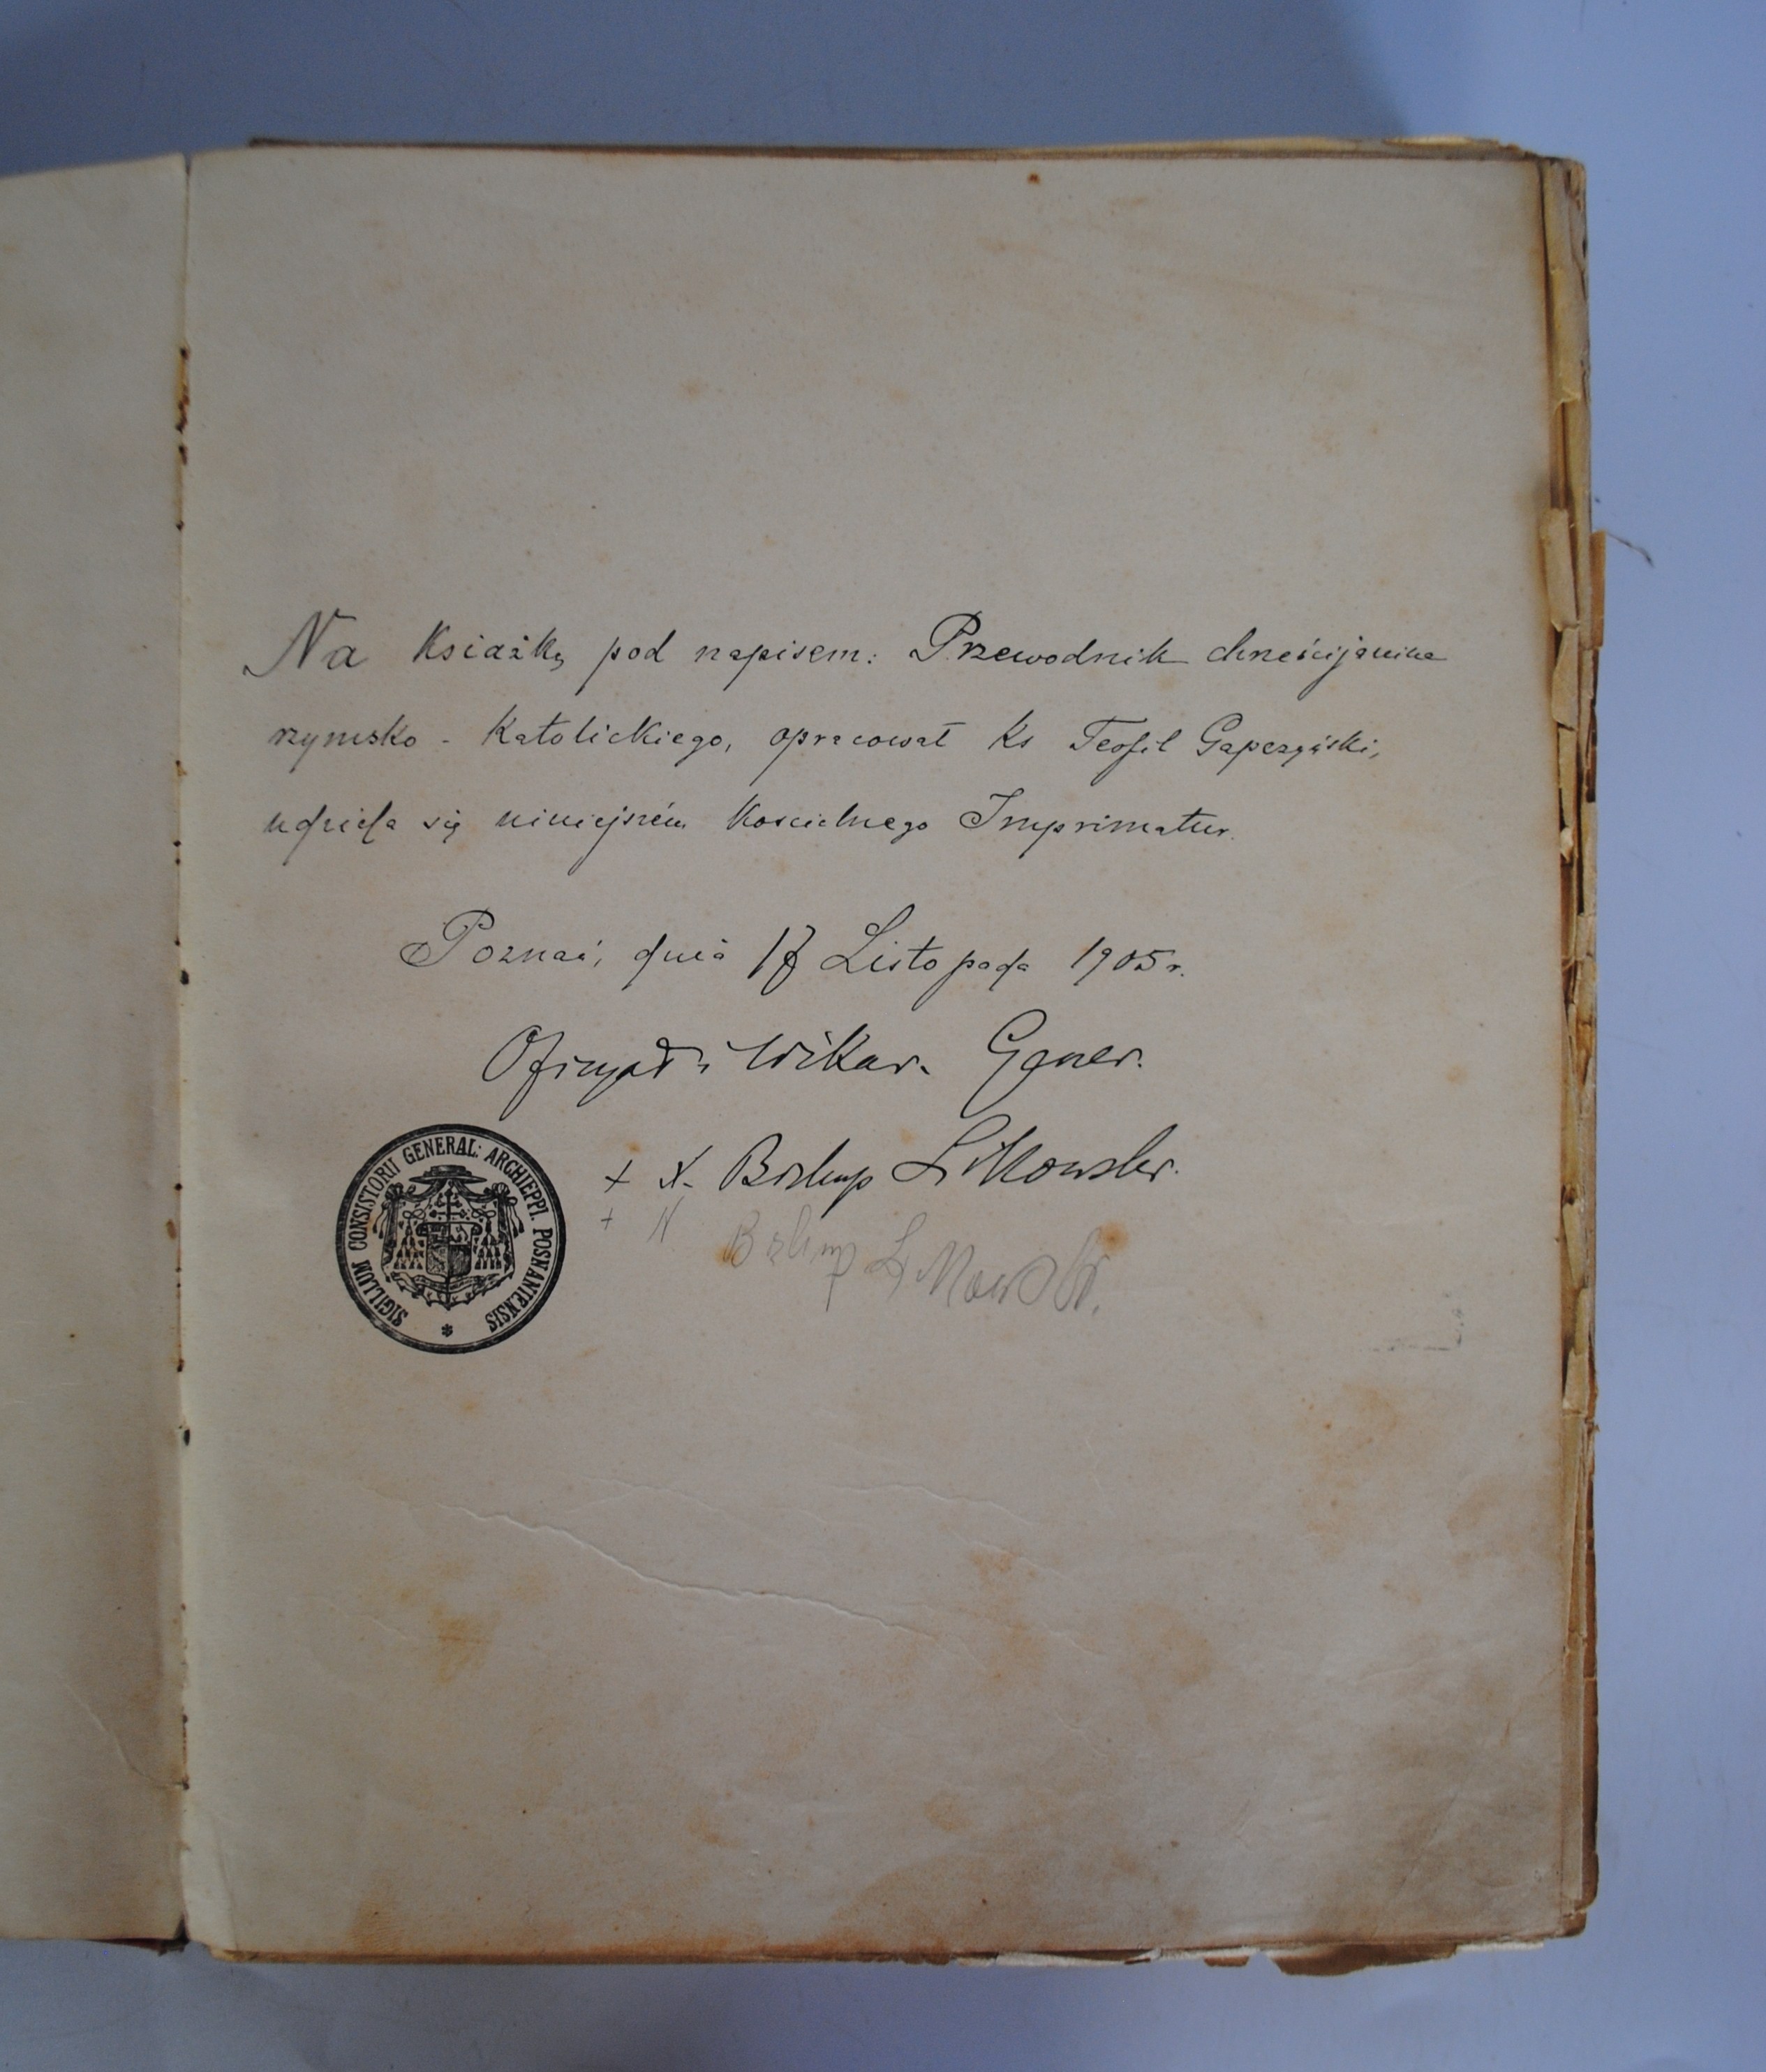 Na Książkę pod napisem: Przewodnik chrześcijanina
rzymsko - Katolickiego, opracował Ks Teofil Gapczyński,
udziela się niniejszém Koscielnego Imprimatur.
Poznań, dnia 17 Listopada 1905 r.
Oficyał i Wikar. Gener.
+ X. Biskup Likowski.
Biskup Likowski.
SIGILLUM CONSISTORII GENERAL: ARCHIEPPI. POSNANIENSIS *